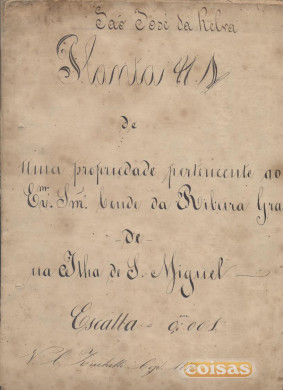 São José da Relva
Planta Nº 1
de
uma propriedade pertencente ao
Exm.º Snr. Conde da Ribeira Gran
de
na Ilha de S. Miguel
Escalla = 0,001
coisas